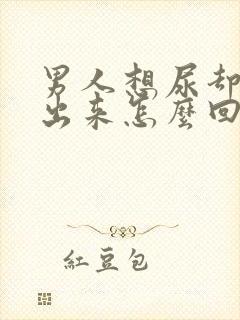 男人想尿却
出来怎麼回
紅豆包